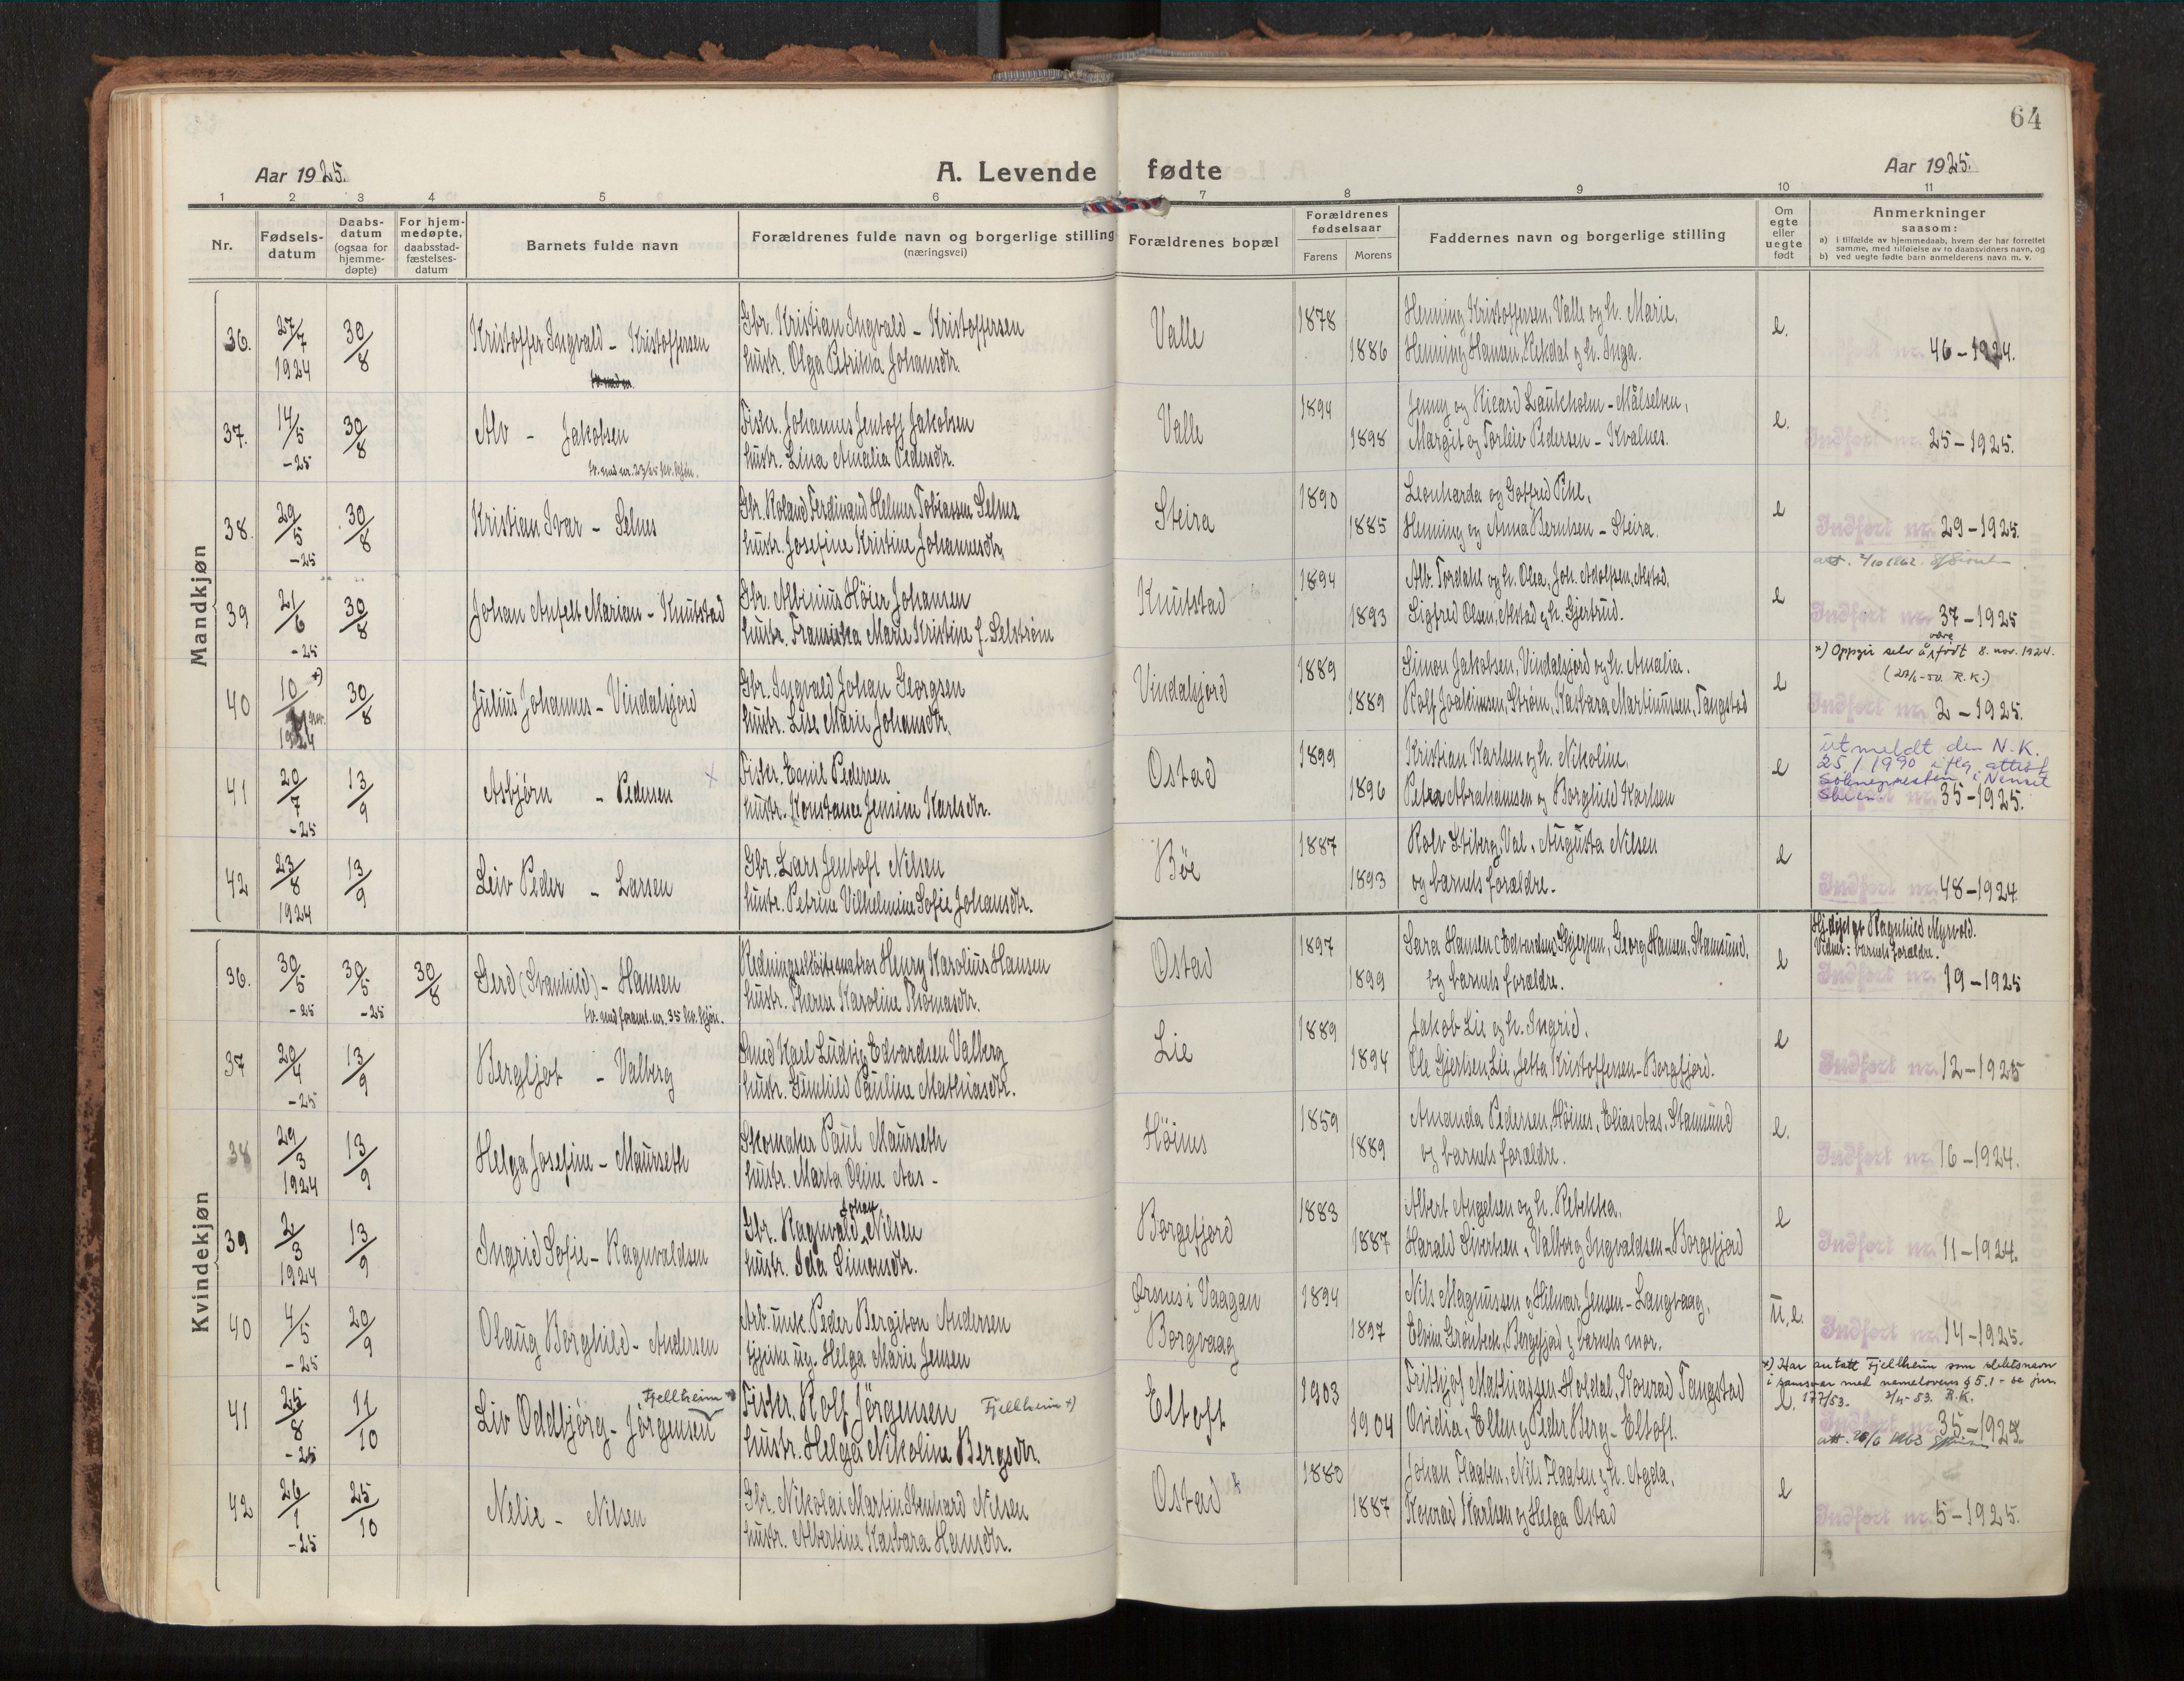 64
Aar 1925.
A. Levende fødte
Aar 1925.
1 2 3 4 5 6 7 8 9 10 11
Nr.
Fødsels-
datum
Daabs-
datum
(ogsaa for
hjemme-
døpte)
For hjem-
medøpte,
daabsstad-
fæstelses-
datum
Barnets fulde navn
Forældrenes fulde navn og borgerlige stilling
(næringsvei)
Forældrenes bopæl
Forældrenes
fødselsaar
Farens Morens
Faddernes navn og borgerlige stilling
Om
egte
eller
uegte
født
Anmerkninger
saasom:
a) i tilfælde av hjemmedaab, hvem der har forrettet
samme, med tilføielse av to daabsvidners navn, og
b) ved uegte fødte barn anmelderens navn m. v.
Mandkjøn
36. 27/7 1924 30/8 Kristoffer Ingvald - Kristoffersen
Gbr. Kristian Ingvald - Kristoffersen
hustr. Olga Petrikka Johansdtr.
Valle 1878 1886
Henning Kristoffersen, Valle og h. Marie,
Henning Hansen, Rekdal og h. Inga.
e. 46-1924.
37. 14/5 -25 30/8 Alv - Jakobsen
Fisker. Johannes Jentoft Jakobsen
hustr. Lina Amalia Pedersdtr.
Valle 1894 1898
Jenny og Ricard Lautholm - Målselven,
Margit og Torleiv Pedersen - Kvalnes.
e. Indført nr. 25-1925.
38. 29/5 -25 30/8 Kristian Ivar - Selnes
Gbr. Roland Ferdinand Helmer Tobiassen Selnes
hustr. Josefine Kristine Johannesdtr.
Steira 1890 1885
Leonharda og Gotfred Pihl,
Henning og Anna Berntsen - Steira.
e Indført nr. 29-1925.
39 21/6 -25 30/8 Johan Anfelt Marian - Knutstad
Gbr. Albinius Höier Johansen
hustr. Fransiska Marie Kristine f. Selstrøm
Knutstad 1894 1893
Alb. Tordahl og h. Olea, Joh. Adolfsen, Alstad,
Sigfred Olsen, Alstad og h. Gjertrud.
e att. 4/10 1962
Indført nr. 37-1925
40 10 x) 1924 30/8 Julius Johannes - Vindalsjord
Gbr. Ingvald Johan Georgsen
hustr. Lise Marie Johansdtr.
Vindalsjord 1889 1889
Simon Jakobsen, Vindalsjord og h. Amalia.
Rolf Joakimsen, Strøm, Karbara Martinussen, Tangstad
e x) Oppgir selv å være født 8. nov. 1924.
(29/6-50. R.K.)
Indført nr. 2-1925.
41 20/7 -25 13/9 Asbjørn - Pedersen x
Fisker. Emil Pedersen
hustr. Konstance Jensine Karlsdtr.
Ostad 1899 1896
Kristian Karlsen og h. Nikoline,
Petra Abrahamsen og Borghild Karlsen
e Utmeldt den N.K.
25/1 1990 iflg. attest
Sokneprest i
Indført nr. 35-1925.
42 23/8 1924 13/9 Leiv Peder - Larsen
Gbr. Lars Jentoft Nilsen
hustr. Petrine Vilhelmine Sofie Johansdtr.
Bøe 1887 1893
Rolv Stiberg, Val, Augusta Nilsen
og barnets forældre.
e Indført nr. 48-1924
Kvindekjøn
36. 30/5 -25 30/5 -25 30/8 Gerd (Svanhild) - Hansen
Redningsskøitematros Henry Karolius Hansen
hustr. Therese Karoline Thomasdtr.
Ostad 1897 1899
Sara Hansen (Edvardsen) Skjerpen, Georg Hansen, Stamsund,
og barnets forældre.
e Hj.døpt av Ragnhild Myrvold.
Vidner: barnets forældre.
Indført nr. 19-1925
37 20/4 -25 13/9 Bergljot - Valberg
Smed Karl Ludvig Edvardsen Valberg
hustr. Gunhild Pauline Mathiasdtr.
Lie 1889 1894
Jakob Lie og h. Ingrid.
Ole Gjertsen, Lie, Jetta Kristoffersen - Borgfjord.
e Indført nr. 12-1925
38 29/3 1924 13/9 Helga Josefine - Maurseth
Skomaker Paul Maurseth
hustr. Marta Oline Aas -
Höines 1859 1889
Amanda Pedersen, Höines, Elias Aas, Stamsund
og barnets forældre.
e. Indført nr. 16-1924.
39 2/3 1924 13/9 Ingrid Sofie - Ragnvaldsen
Gbr. Ragnvald Johan Nilsen
hustr. Ida Simonsdtr.
Borgefjord 1883 1887
Albert Angelsen og h. Rebekka,
Harald Sivertsen, Valborg Ingvaldsen - Borgefjord
e Indført nr. 11-1924.
40 4/5 -25 20/9 Olaug Borghild - Andersen
Arb. unk. Peder Bergiton Andersen
tjpike ug. Helga Marie Jensen
Ørsnes i Vaagan
Borgvaag 1894 1897
Nils Magnussen og Hilmar Jensen - Langvaag,
Elvine Grönbech, Borgefjord og barnets mor.
u.e. Indført nr. 14-1925.
41 25/8 -25 11/10 Liv Oddbjörg - Jörgensen Fjellheim x)
Fisker. Rolf Jörgensen Fjellheim x)
hustr. Helga Nikoline Bergsdtr.
Eltoft 1903 1904
Frithjof Mathiassen Holdal, Konrad Tangstad
Ovidia, Ellen og Peder Berg - Eltoft.
e. x) Har antatt Fjellheim som slektsnavn
i samsvar med namelovens § 5.1 - se jnr.
177/53. R.K.
Indført nr. 35-1925.
att. 26/6 1963
42 26/1 -25 25/10 Nelie - Nilsen
Gbr. Nikolai Martin Ibenhard Nilsen
hustr. Albertine Karbara Hansdtr.
Ostad 1880 1887
Johan Flaaten, Nils Flaaten og h. Agda,
Konrad Karlsen og Helga Ostad
e Indført nr. 5-1925.